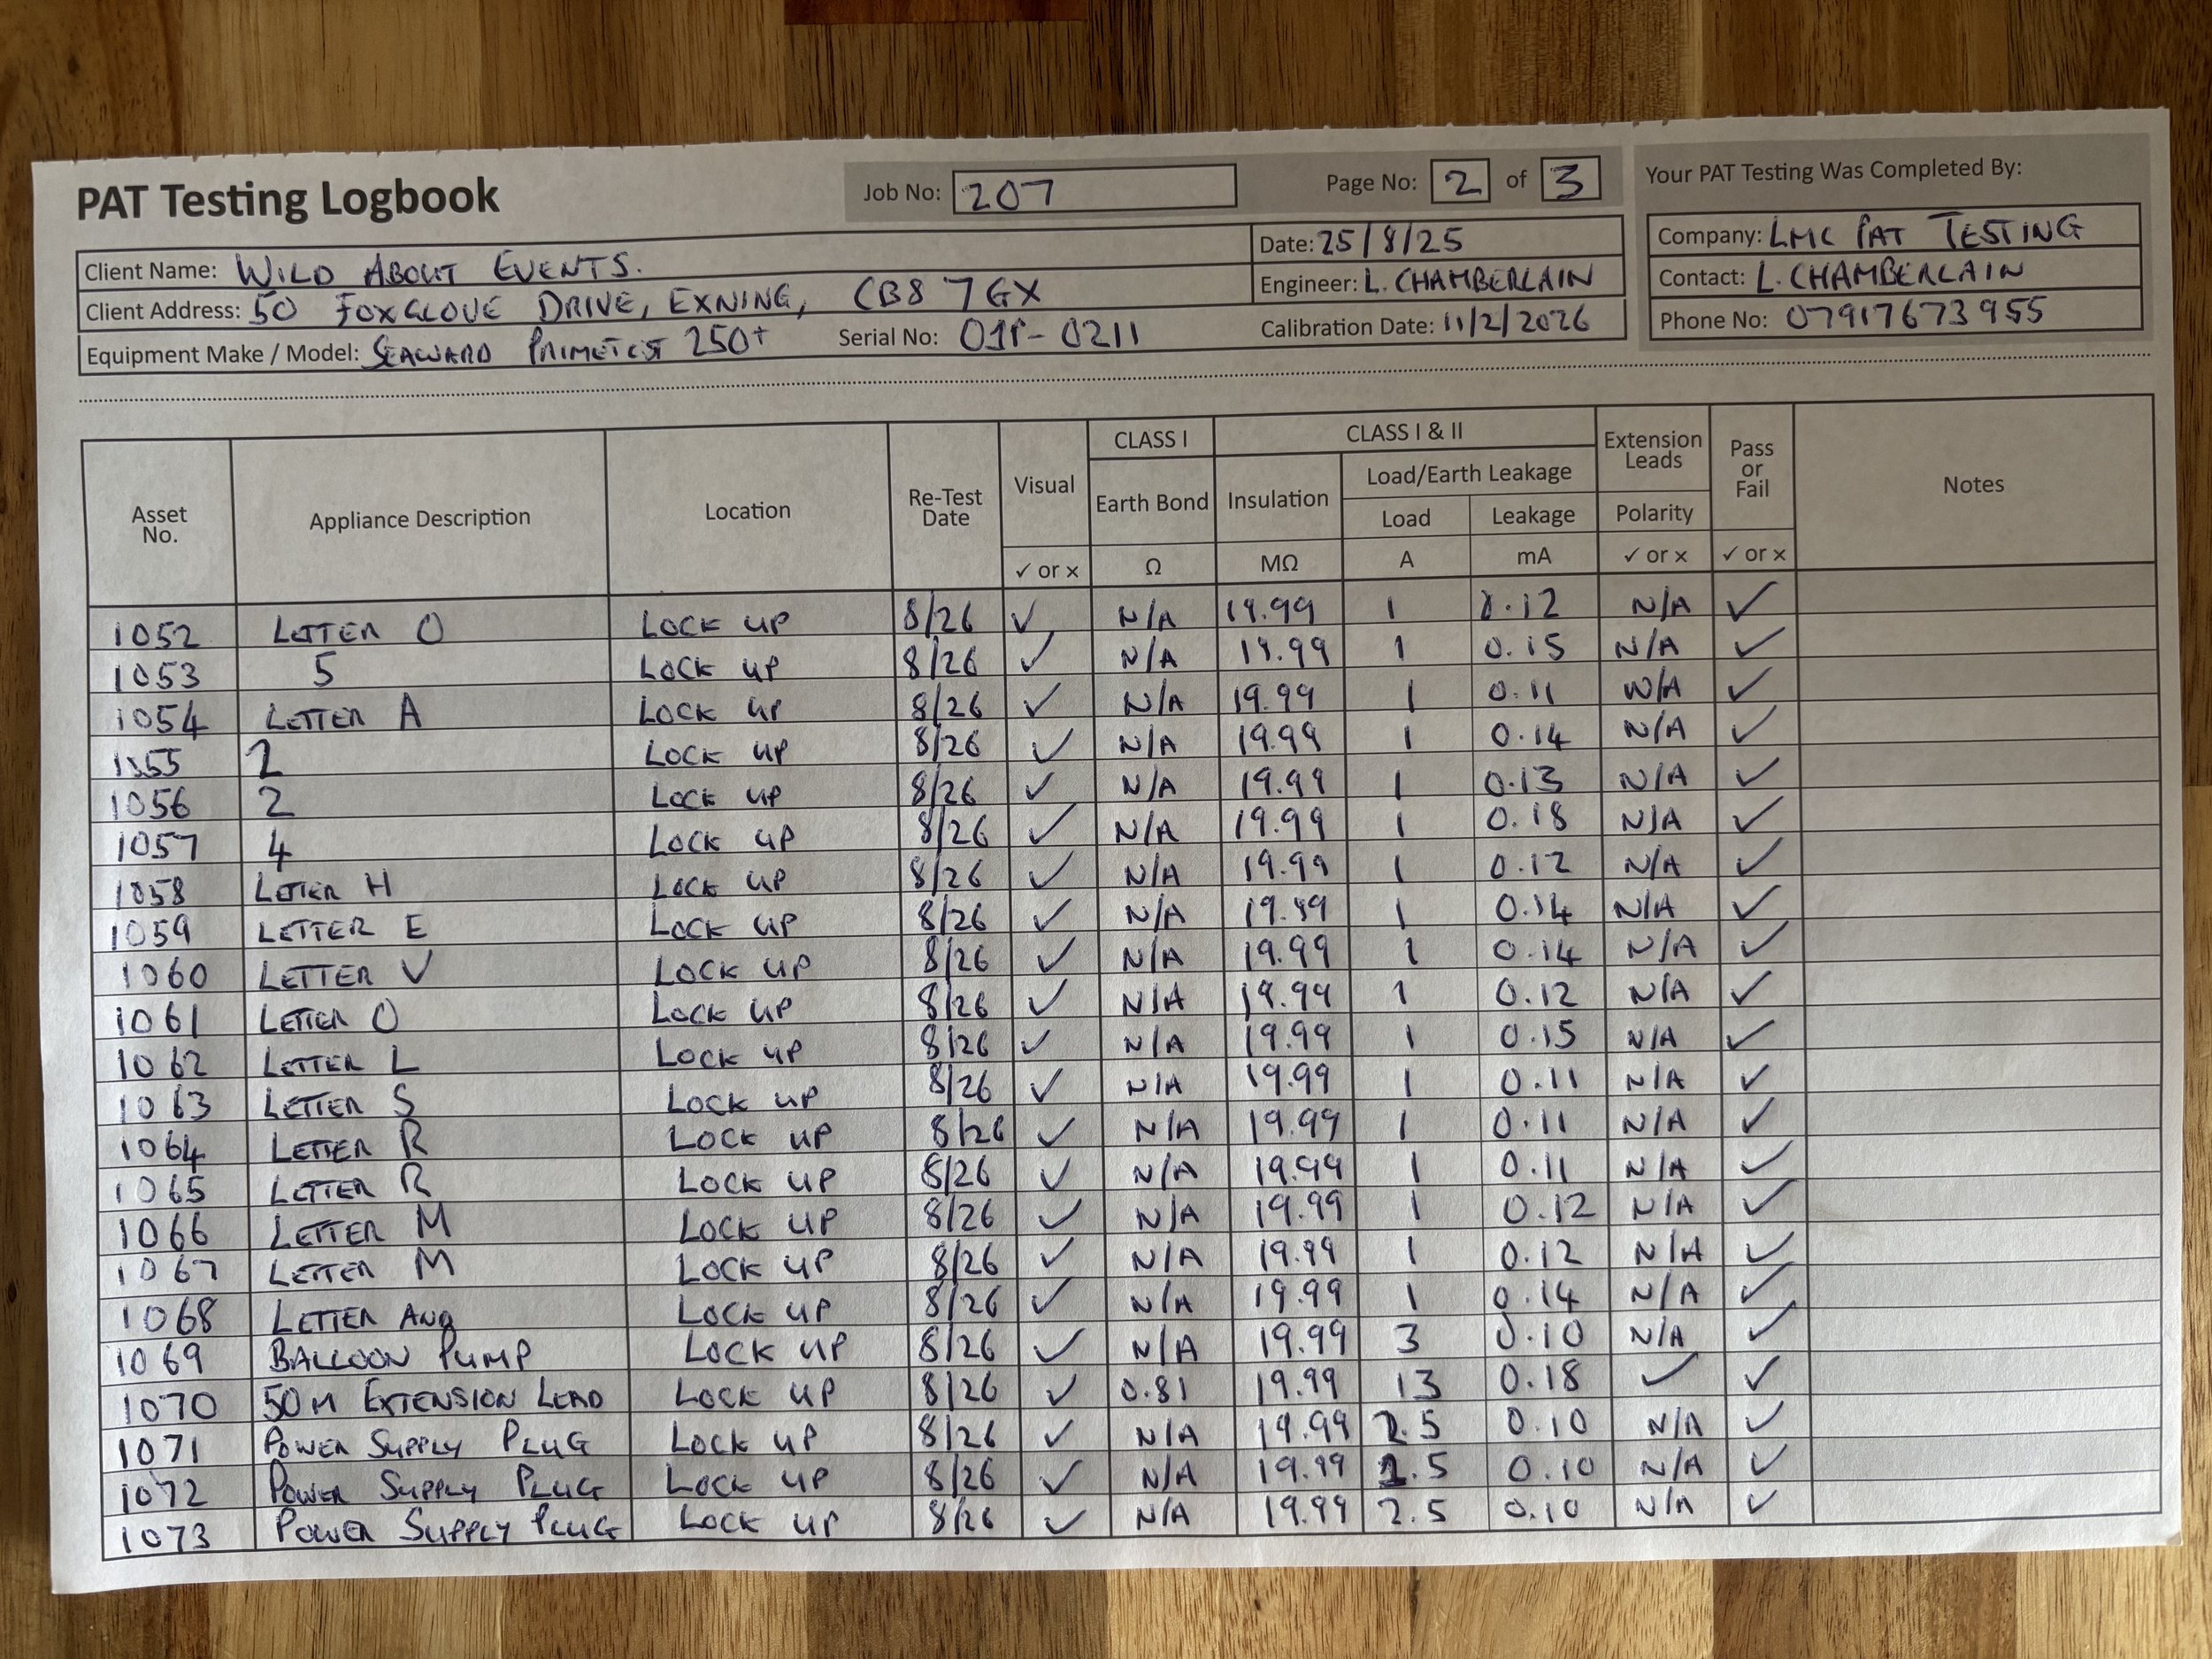 PAT Testing Logbook
Job No: 207
Page No: 2 of 3
Your PAT Testing Was Completed By:
Client Name: WILD ABOUT EVENTS.
Date: 25/8/25
Company: LMC PAT TESTING
Client Address: 50 FOXGLOVE DRIVE, EXNING, CB8 7GX
Engineer: L. CHAMBERLAIN
Contact: L. CHAMBERLAIN
Equipment Make / Model: SEAWARD PRIMETEST 250+
Serial No: 01P-0211
Calibration Date: 11/2/2026
Phone No: 07917673955
CLASS I
CLASS I & II
Extension Leads
Pass or Fail
Asset No.
Appliance Description
Location
Re-Test Date
Visual
Earth Bond
Insulation
Load/Earth Leakage
Notes
Load
Leakage
Polarity
✓ or x
Ω
MΩ
A
mA
✓ or x
✓ or x
1052 LETTER O LOCK UP 8/26 ✓ N/A 19.99 1 0.12 N/A ✓
1053 5 LOCK UP 8/26 ✓ N/A 19.99 1 0.15 N/A ✓
1054 LETTER A LOCK UP 8/26 ✓ N/A 19.99 1 0.11 N/A ✓
1055 2 LOCK UP 8/26 ✓ N/A 19.99 1 0.14 N/A ✓
1056 2 LOCK UP 8/26 ✓ N/A 19.99 1 0.13 N/A ✓
1057 4 LOCK UP 8/26 ✓ N/A 19.99 1 0.18 N/A ✓
1058 LETTER H LOCK UP 8/26 ✓ N/A 19.99 1 0.12 N/A ✓
1059 LETTER E LOCK UP 8/26 ✓ N/A 19.99 1 0.14 N/A ✓
1060 LETTER V LOCK UP 8/26 ✓ N/A 19.99 1 0.14 N/A ✓
1061 LETTER O LOCK UP 8/26 ✓ N/A 19.99 1 0.12 N/A ✓
1062 LETTER L LOCK UP 8/26 ✓ N/A 19.99 1 0.15 N/A ✓
1063 LETTER S LOCK UP 8/26 ✓ N/A 19.99 1 0.11 N/A ✓
1064 LETTER R LOCK UP 8/26 ✓ N/A 19.99 1 0.11 N/A ✓
1065 LETTER R LOCK UP 8/26 ✓ N/A 19.99 1 0.11 N/A ✓
1066 LETTER M LOCK UP 8/26 ✓ N/A 19.99 1 0.12 N/A ✓
1067 LETTER M LOCK UP 8/26 ✓ N/A 19.99 1 0.12 N/A ✓
1068 LETTER AND LOCK UP 8/26 ✓ N/A 19.99 1 0.14 N/A ✓
1069 BALLOON PUMP LOCK UP 8/26 ✓ N/A 19.99 3 0.10 N/A ✓
1070 50M EXTENSION LEAD LOCK UP 8/26 ✓ 0.81 19.99 13 0.18 ✓ ✓
1071 POWER SUPPLY PLUG LOCK UP 8/26 ✓ N/A 19.99 2.5 0.10 N/A ✓
1072 POWER SUPPLY PLUG LOCK UP 8/26 ✓ N/A 19.99 0.10 N/A ✓
1073 POWER SUPPLY PLUG LOCK UP 8/26 ✓ N/A 19.99 2.5 0.10 N/A ✓